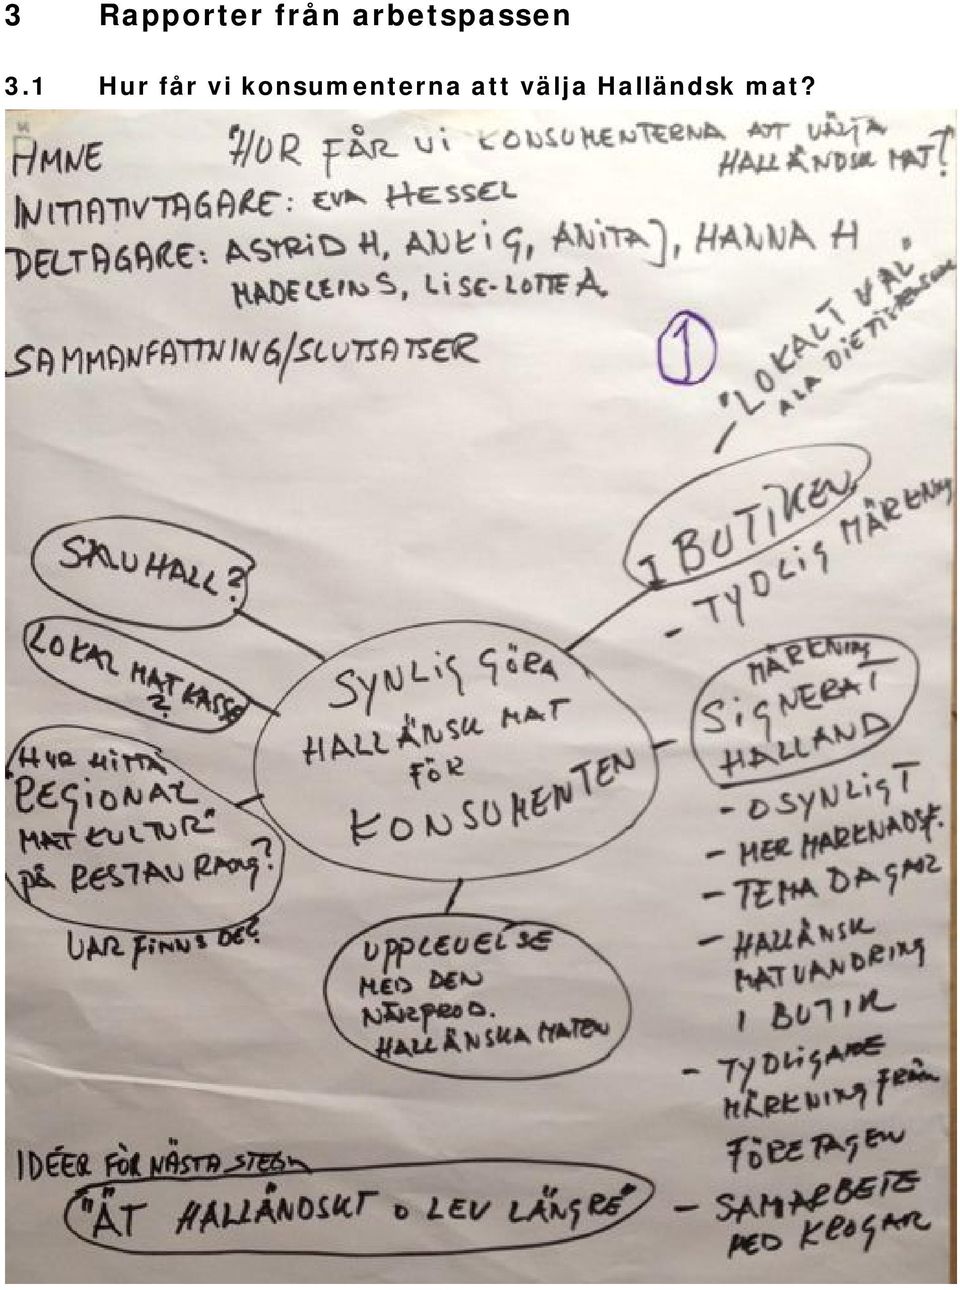 3 Rapporter från arbetspassen
3.1 Hur får vi konsumenterna att välja Halländsk mat?
ÄMNE "HUR FÅR Vi KONSUMENTERNA ATT VÄLJA
HALLÄNDSK MAT?
INITIATIVTAGARE: EVA HESSEL
DELTAGARE: ASTRiD H, ANKiG, ANiTA J, HANNA H
MADELEIN S, LiSE-LOTTE A.
SAMMANFATTNING/SLUTSATSER
1
- "LOKALT VAL"
ALA
I BUTIKEN
- TYDLiG MÄRKNING
SALUHALL?
LOKAL MATKASSE
?
HUR HiTTA
REGiONAL
MATKULTUR"
PÅ RESTAURANG?
VAR FiNNS DE?
SYNLiG GÖRA
HALLÄNSK MAT
FÖR
KONSUMENTEN
MÄRKNING
SiGNERAT
HALLAND
- OSYNLiGT
- MER MARKNADSF.
- TEMADAGAR
- HALLÄNSK
MATVANDRING
I BUTIK
- TYDLiGARE
MÄRKNING FRÅN
FÖRETAGEN
- SAMARBETE
MED KROGAR
UPPLEVELSE
MED DEN
NÄRPROD.
HALLÄNSKA MATEN
IDÉER FÖR NÄSTA STEG
"ÄT HALLÄNDSKT O LEV LÄNGRE"